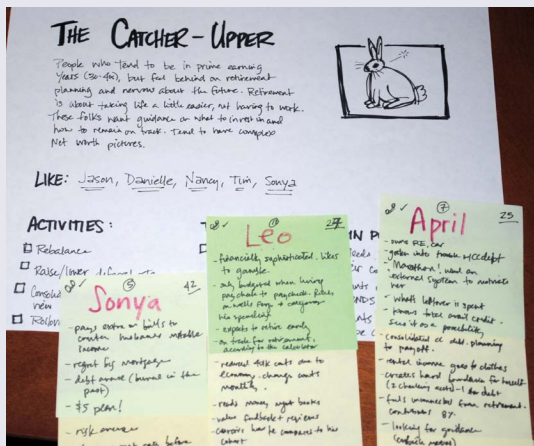 THE CATCHER-UPPER
People who tend to be in prime earning
years (30-40s), but feel behind on retirement
planning and nervous about the future. Retirement
is about taking life a little easier, not having to work.
These folks want guidance on what to invest in and
how to remain on track. Tend to have complex
Net worth pictures.
LIKE: Jason, Danielle, Nancy, Tim, Sonya
ACTIVITIES:
Rebalance
Raise/lower
Sonya
42
- pays extra on bills to
counter husbands unstable
income
- regret big mortgage
- debt averse (burned in the
past)
- $5 plan!
- risk averse
Leo
- financially sophisticated. likes
to gamble
- only budgeted when living
paycheck to paycheck. Relies
on wells fargo to categorize
his spending
- expects to retire early
- on track for retirement,
according to the calculator
- reduced 401k cuts due to
economy. change conts
monthly.
- reads money mgmt books
- value
how he compares to his
cohort
April
7
25
- owns RE, car
- gotten into trouble w/CC debt
"Marathon". want an
external system to motivate
her
- what's leftover is spent
- knows total avail credit.
sees it as a possibility
- consolidated cc debt. planning
to payoff.
- rental income goes to clothes
- creates hard for herself
(2 checking accts) - 1 for debt
- feels from retirement.
contributes 8%
- looking for guidance